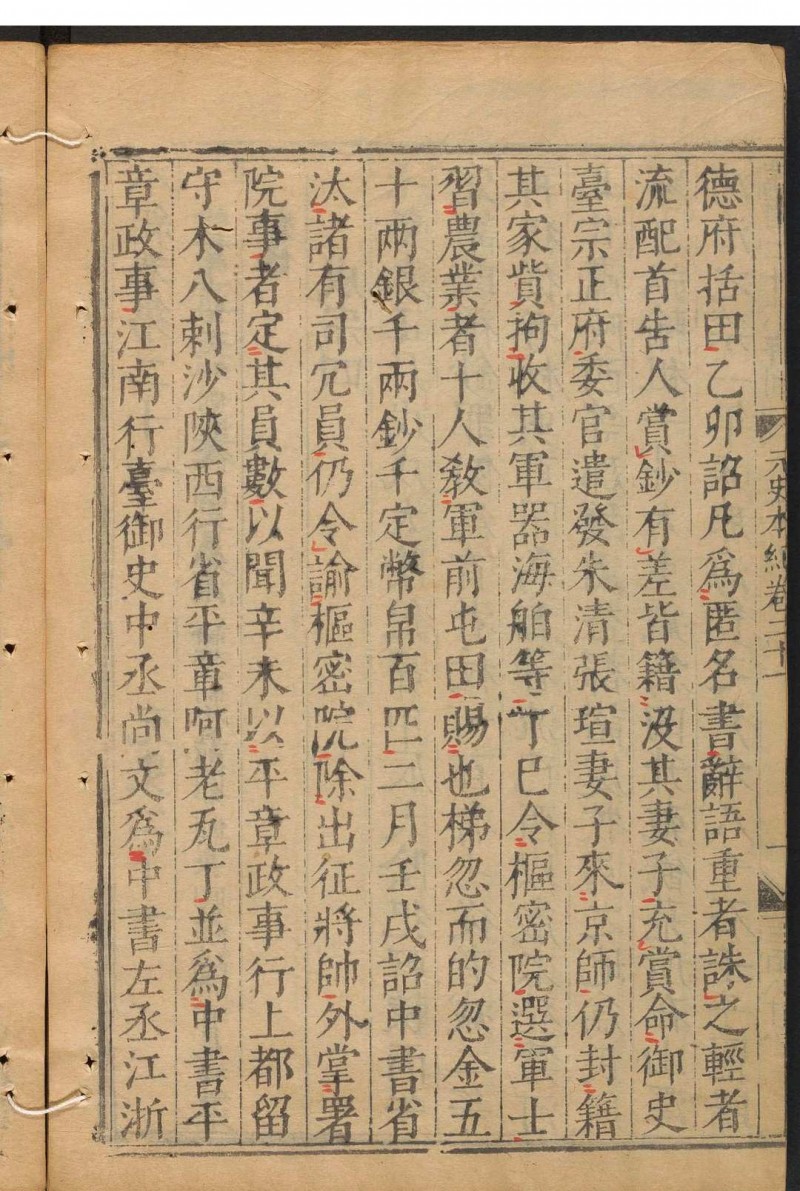 德府括田乙卯詔凡爲匿名書辭語重者誅之輕者
流配首告人賞鈔有差皆籍没其妻子充賞命御史
臺宗正府委官遣發朱清張瑄妻子來京師仍封籍
其家貲拘收其軍器海舶等丁巳令樞密院選軍士
習農業者十人敎軍前屯田賜也梯忽而的忽金五
十兩銀千兩鈔千定幣帛百匹二月壬戌詔中書省
汰諸有司冗員仍令諭樞密院除出征將帥外掌署
院事者定其員數以聞辛未以平章政事行上都留
守木八剌沙陝西行省平章阿老瓦丁並爲中書平
章政事江南行臺御史中丞尚文爲中書左丞江浙
元史本紀卷二十一